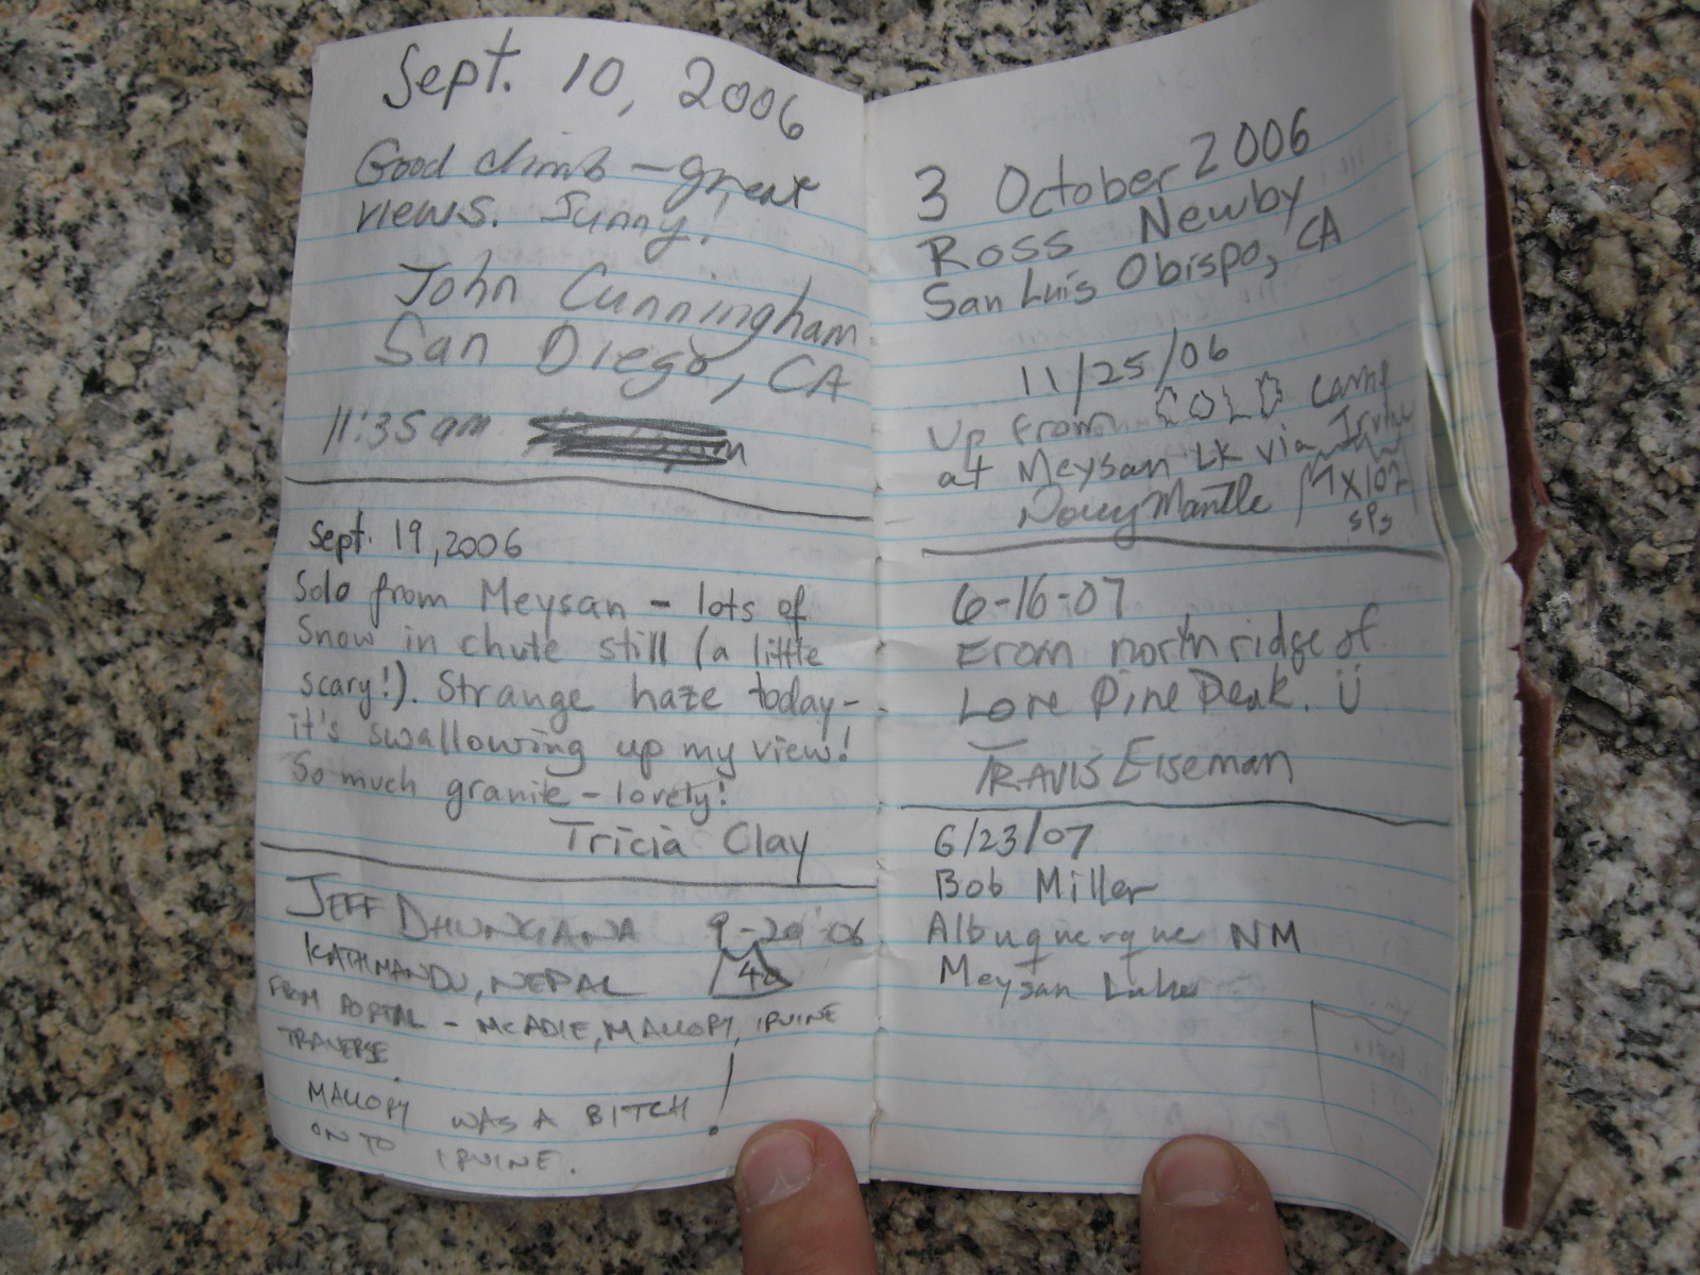 Sept. 10, 2006
Good climb - great
views. Sunny!
John Cunningham
San Diego, CA
11:35 am
Sept. 19, 2006
Solo from Meysan - lots of
snow in chute still (a little
scary!). Strange haze today -
it's swallowing up my view!
So much granite - lovely!
Tricia Clay
JEFF DHUNGANA 9-20-06
KATHMANDU, NEPAL
FROM PORTAL - MCADIE, MALLORY, IRVINE
TRAVERSE.
MALLORY WAS A BITCH!
ON TO IRVINE.
3 October 2006
Ross Newby
San Luis Obispo, CA
11/25/06
Up From COLD camp
at Meysan LK via Irvine
Doug Mantle
SPS
6-16-07
From north ridge of
Lone Pine Peak. Ü
TRAVIS Eiseman
6/23/07
Bob Miller
Albuquerque NM
Meysan Lake